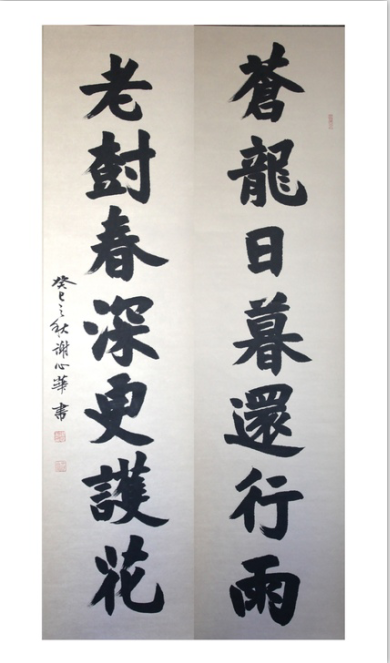 蒼龍日暮還行雨
老尌春深更護花
癸巳之秋謝心華書